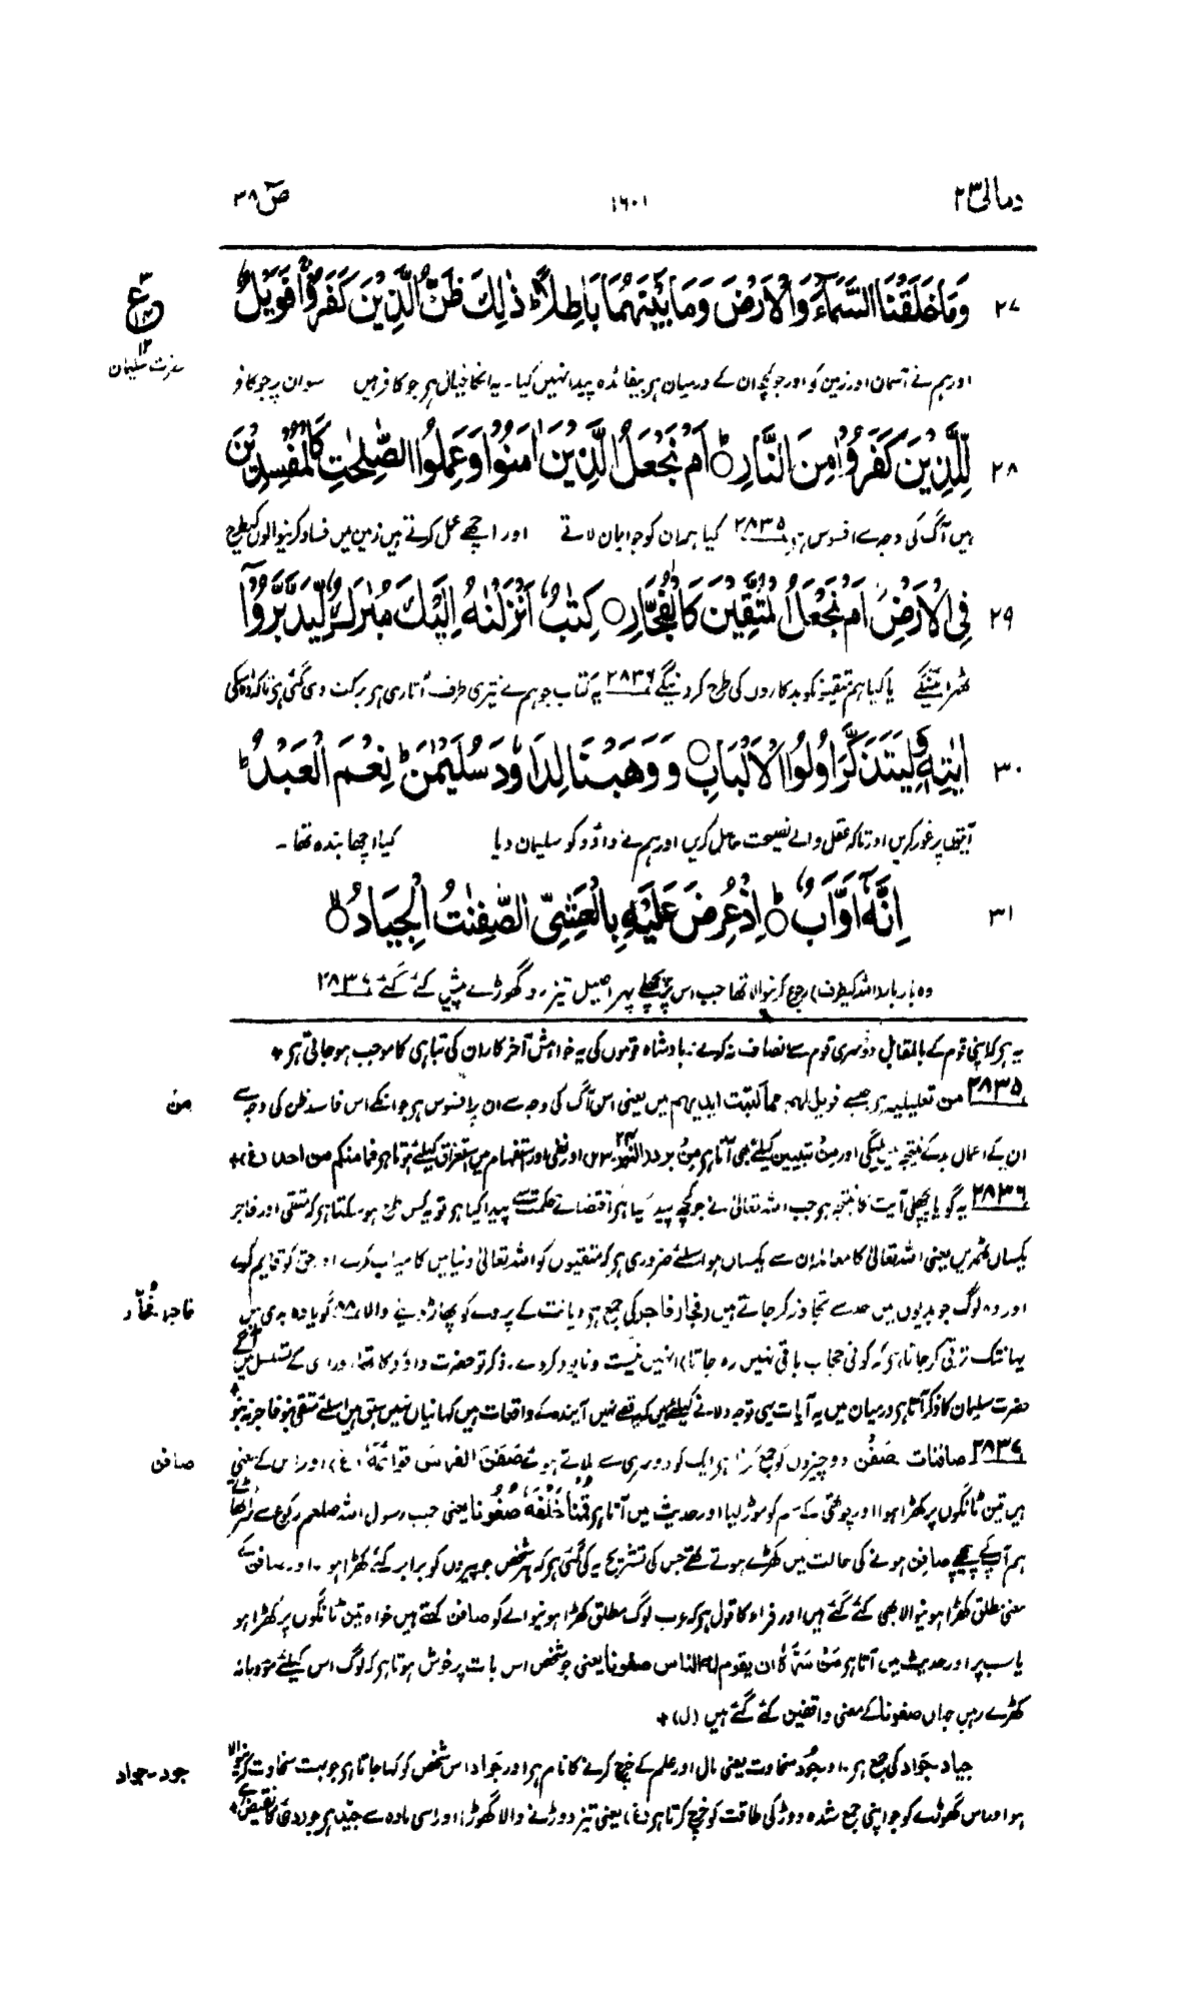 ومالی ۲۳
۱۶۰۱
صٓ ۳۸
۲۷ وَمَا خَلَقْنَا السَّمَآءَ وَالْاَرْضَ وَمَا بَيْنَهُمَا بَاطِلًا ؕ ذٰلِكَ ظَنُّ الَّذِيْنَ كَفَرُوْا ۚ فَوَيْلٌ
ع ۳ ۱۲ ۱۲
حضرت سلیمان
اور ہم نے آسمان اور زمین کو اور جو کچھ ان کے درمیان ہر بیفائدہ پیدا نہیں کیا۔ یہ انکا خیال ہر جو کافر ہیں سو ان پر جو کافر
۲۸ لِّلَّذِيْنَ كَفَرُوْا مِنَ النَّارِ ؕ اَمْ نَجْعَلُ الَّذِيْنَ اٰمَنُوْا وَعَمِلُوا الصّٰلِحٰتِ كَالْمُفْسِدِيْنَ
ہیں آگ کی وجہ سے افسوس ہر ۲۸۳۵ کیا ہم ان کو جو ایمان لاتے اور اچھے عمل کرتے ہیں زمین میں فساد کرنیوالوں کیطرح
۲۹ فِی الْاَرْضِ ؗ اَمْ نَجْعَلُ الْمُتَّقِيْنَ كَالْفُجَّارِ كِتٰبٌ اَنْزَلْنٰهُ اِلَيْكَ مُبٰرَكٌ لِّيَدَّبَّرُوْٓا
ٹھہرائینگے یا کیا ہم متقیوں کو بدکاروں کی طرح کر دینگے ۲۸۳۶ یہ کتاب جو ہم نے تیری طرف اُتاری ہر برکت دی گئی ہر تاکہ وہ اسکی
۳۰ اٰيٰتِهٖ وَلِيَتَذَكَّرَ اُولُوا الْاَلْبَابِ وَوَهَبْنَا لِدَاوٗدَ سُلَيْمٰنَ ؕ نِعْمَ الْعَبْدُ ؕ
آیتوں پر غور کریں اور تاکہ عقل والے نصیحت حاصل کریں اور ہم نے داؤد کو سلیمان دیا کیا اچھا بندہ تھا۔
۳۱ اِنَّهٗٓ اَوَّابٌ ؕ اِذْ عُرِضَ عَلَيْهِ بِالْعَشِيِّ الصّٰفِنٰتُ الْجِيَادُ ۙ
وہ بار بار (اللہ کیطرف) رجوع کرنیوالا تھا جب اس پر پچھلے پہر اصیل تیز رو گھوڑے پیش کئے گئے ۲۸۳۷
یہ ہر کہ اپنی قوم کے بالمقابل دوسری قوم سے انصاف نہ کرے۔ بادشاہ قوموں کی یہ خواہش آخر کار ان کی تباہی کا موجب ہو جاتی ہر +
۲۸۳۵ من تعلیلیہ ہر جیسے فویل لہم مما کتبت ایدیہم میں یعنی اس آگ کی وجہ سے ان پر افسوس ہر جو انکے اس فاسد ظن کی وجہ سے
من
ان کے اعمال بد کے نتیجہ میں اور من تبیین کیلئے بھی آتا ہر اور نفی اور استفہام میں استغراق کیلئے ہوتا ہر فما منکم من احد (غ) +
۲۸۳۶ یہ گویا پچھلی آیت کا نتیجہ ہر جب اللہ تعالیٰ نے جو کچھ پیدا کیا ہر اقتضائے حکمت سے پیدا کیا ہر تو یہ کس طرح ہو سکتا ہر کہ متقی اور فاجر
یکساں ٹھہریں یعنی اللہ تعالیٰ کا معاملہ ان سے یکساں ہو اسلئے ضروری ہر کہ متقیوں کو اللہ تعالیٰ دنیا میں کامیاب کرے اور حق کو قایم کرے
اور وہ لوگ جو بدیوں میں حد سے تجاوز کر جاتے ہیں (فجار فاجر کی جمع ہر دیانت کے پردے کو پھاڑ دینے والا گویا وہ بدی میں
فاجر فُجّار
یہانتک ترقی کر جاتا ہر کہ کوئی حجاب باقی نہیں رہ جاتا) انہیں نیست و نابود کر دے۔ ذکر تو حضرت داؤد کا تھا اور اسی کے تسلسل میں آگے
حضرت سلیمان کا ذکر آتا ہر درمیان میں یہ آیات یہی توجہ دلانے کیلئے ہیں کہ یہ قصے نہیں آیندہ کے واقعات ہیں کہانیاں نہیں سبق ہیں اسلئے متقی بنو فاجر نہ بنو
۲۸۳۷ صافنات صَفْن دو چیزوں کو جمع کرنا ہر ایک کو دوسری سے ملاتے ہوئے صَفَنَ الفرسُ قوائمَہٗ (غ) اور اس کے معنی
صافن
ہیں تین ٹانگوں پر کھڑا ہوا اور چوتھی کے سم کو موڑ لیا اور حدیث میں آتا ہر قُمْنَا خَلْفَہٗ صُفُونًا یعنی جب رسول اللہ صلعم رکوع سے سر اٹھاتے تھے
ہم آپ کے پیچھے صافن ہونے کی حالت میں کھڑے ہوتے تھے جس کی تشریح یہ کی گئی ہر کہ ہر شخص جو پیروں کو برابر کئے کھڑا ہو۔ اور صافن کے
معنی مطلق کھڑا ہونیوالا بھی کئے گئے ہیں اور فراء کا قول ہر کہ عرب لوگ مطلق کھڑا ہونیوالے کو صافن کہتے ہیں خواہ تین ٹانگوں پر کھڑا ہو
یا سب پر اور حدیث میں آتا ہر مَنْ سَرَّہٗ ان یقوم لہ الناس صفونا یعنی جو شخص اس بات پر خوش ہوتا ہر کہ لوگ اس کیلئے مؤدبانہ
کھڑے رہیں جہاں صفونا کے معنی واقفین کئے گئے ہیں (ل) +
جیاد۔ جَواد کی جمع ہر۔ اور جُود سخاوت یعنی مال اور علم کے خرچ کرنے کا نام ہر اور جَواد اس شخص کو کہا جاتا ہر جو بہت سخاوت کرنیوالا
جود۔ جواد
ہو اور اس گھوڑے کو جو اپنی جمع شدہ دوڑ کی طاقت کو خرچ کرتا ہر (غ) یعنی تیز دوڑنے والا گھوڑا اور اسی مادہ سے جیّد ہر جو ردی کا نقیض ہے +